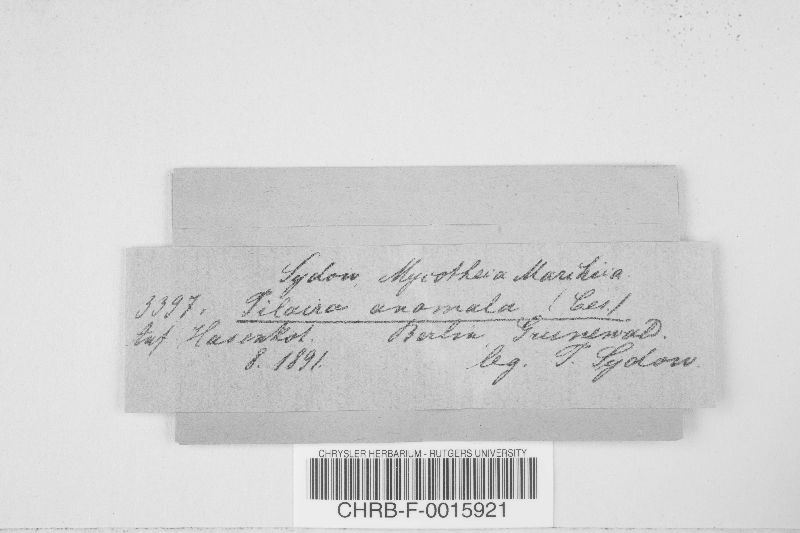 Sydow, Mycotheca Marchica.
3397. Pilaira anomala (Ces)
Auf Hasenkot. Berlin, Grunewald.
8. 1891. leg. P. Sydow.
CHRYSLER HERBARIUM - RUTGERS UNIVERSITY
CHRB-F-0015921